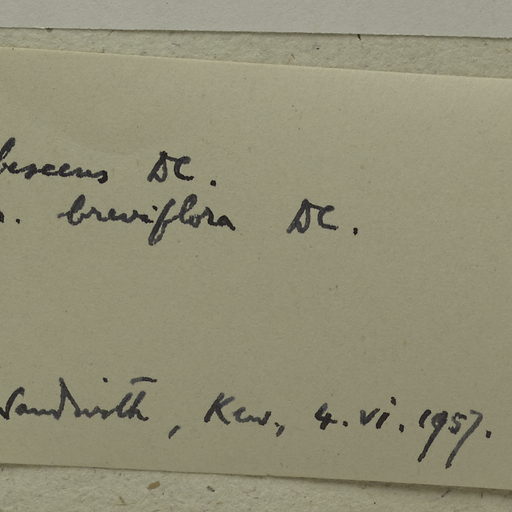 bescens DC.
. breviflora DC.
Sandwith, Kew, 4.vi.1957.